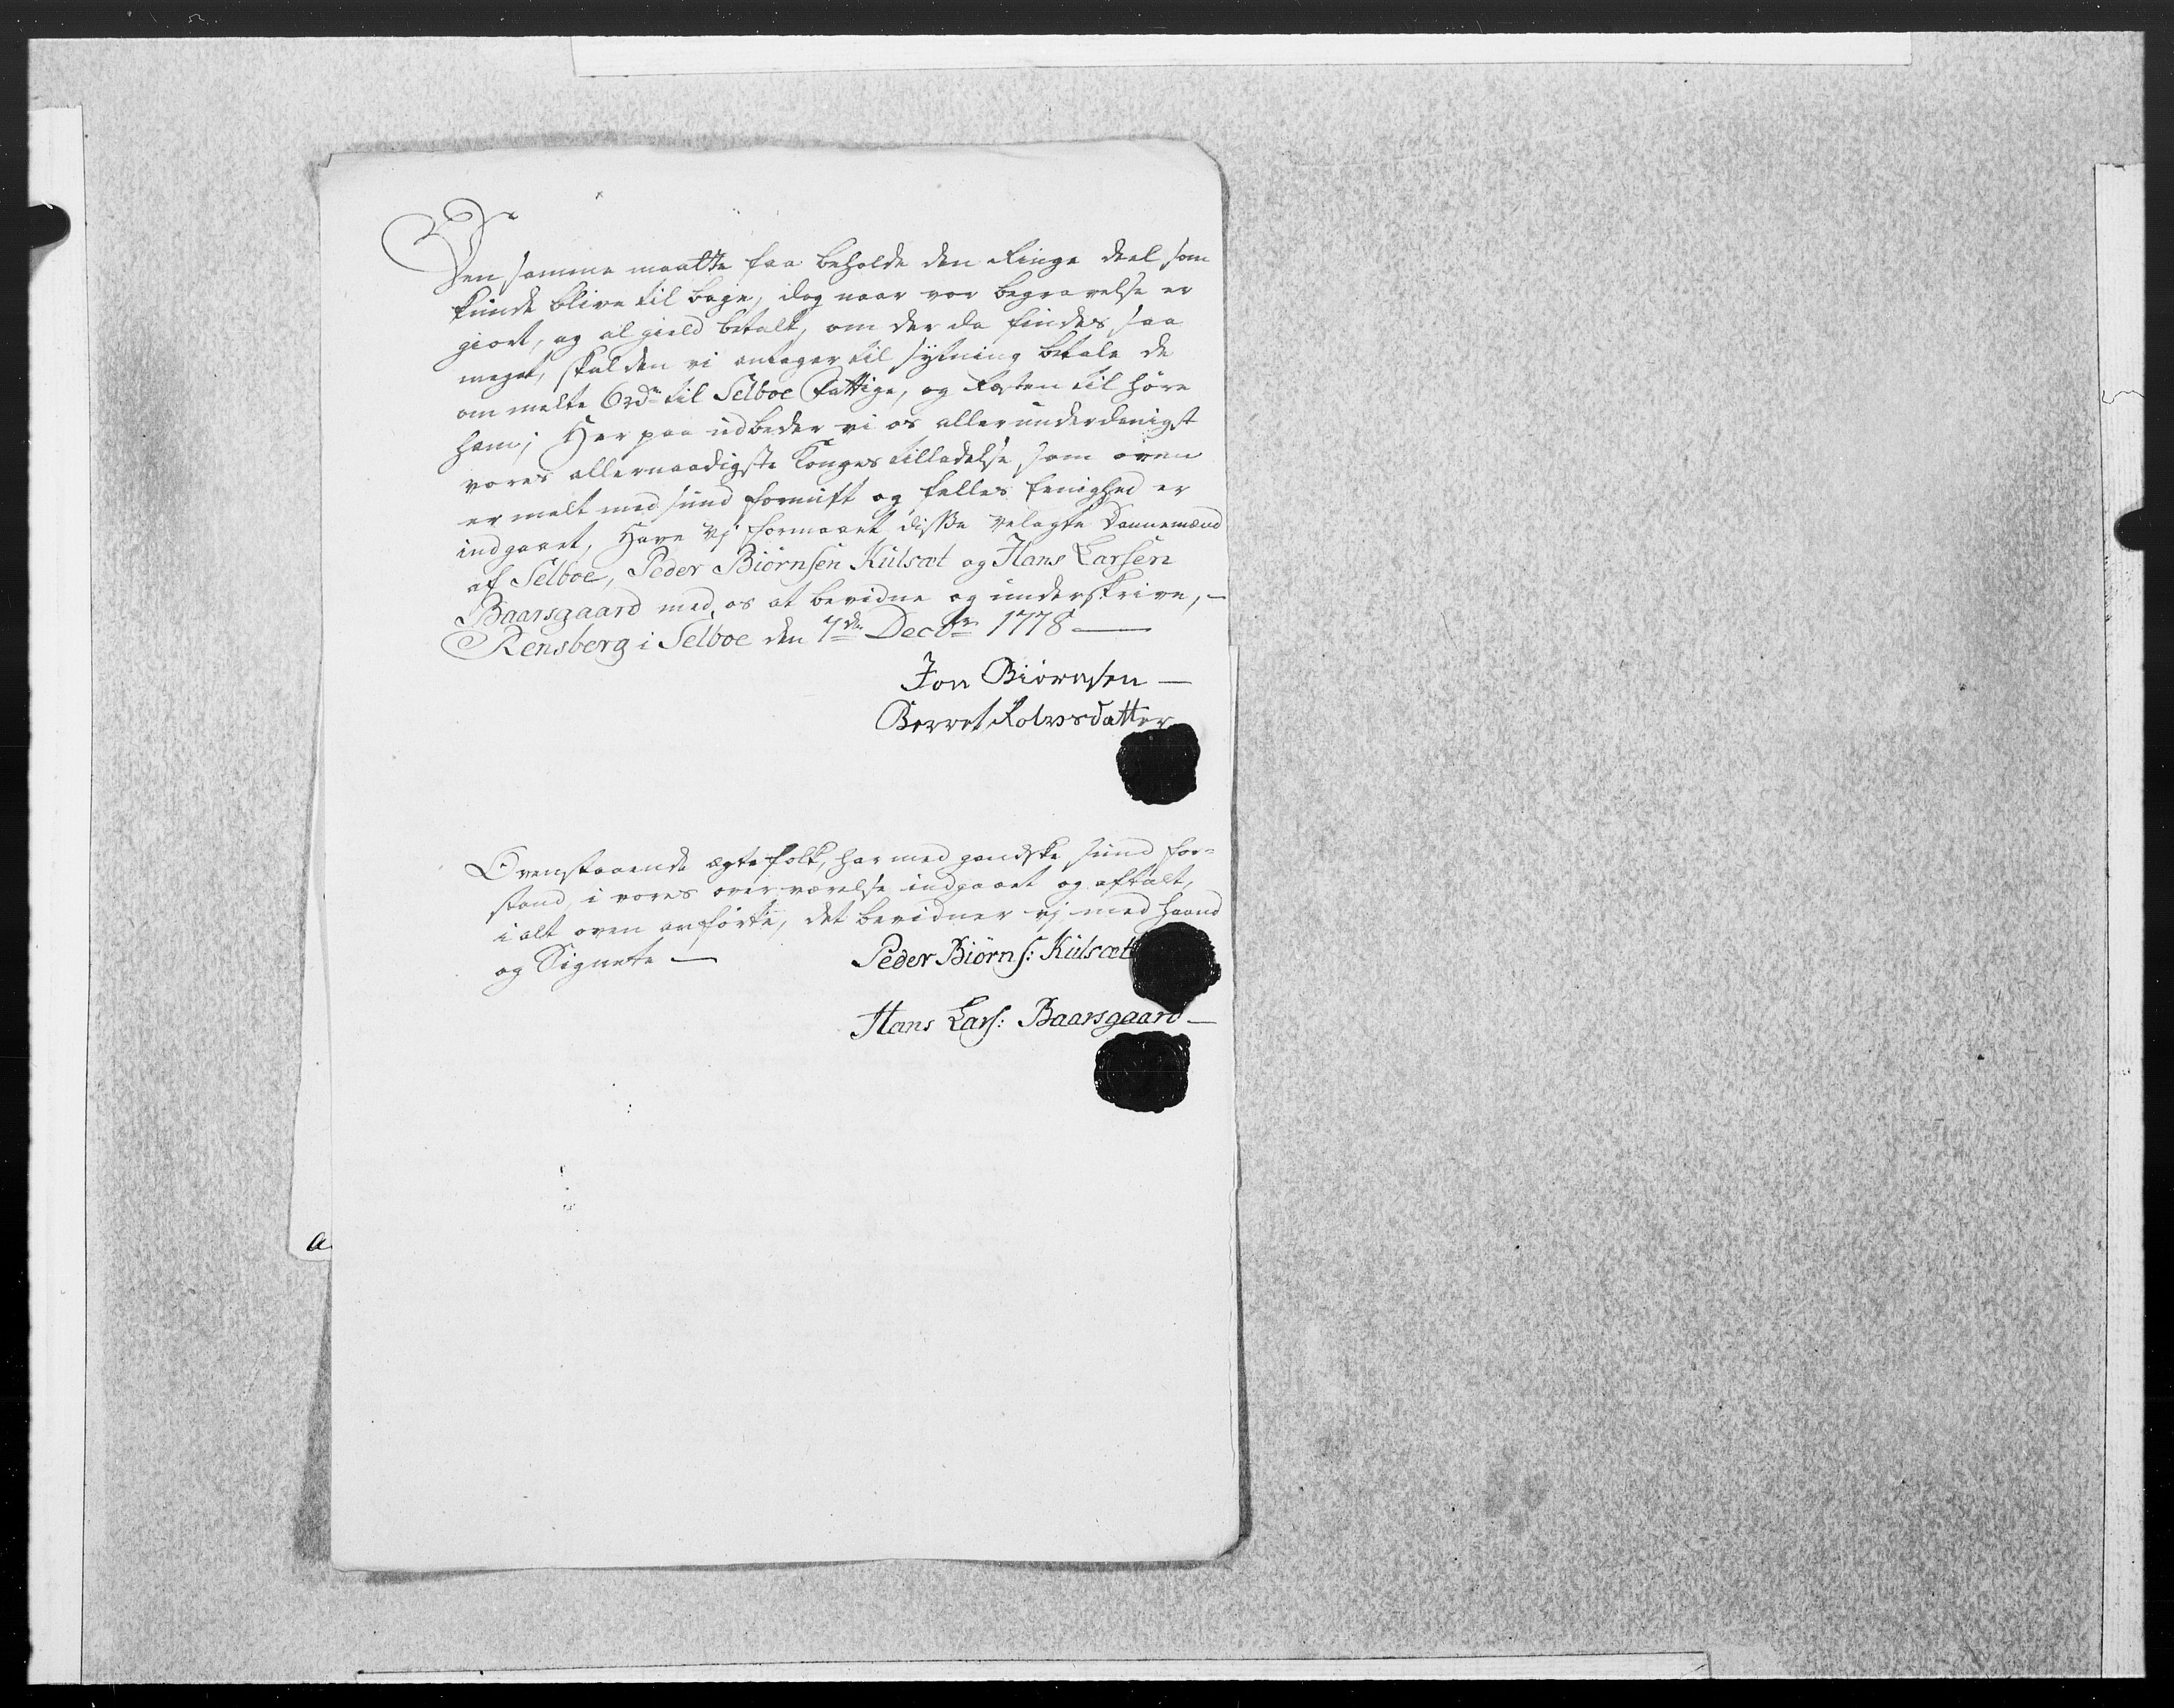 Den samme maatte faa beholde den Ringe deel som
kunde blive til bage, dog naar vor begravelse er
giort, og al gield betalt, om der da findes saa
meget, skal den vi antager til sytning betale de
om melte 6 rd til Selboe Fattige, og Resten til höre
ham; Her paa udbeder vi os allerunderdanigst
vores allernaadigste Konges tilladelse, som oven
er melt med sund fornuft og felles Enighed er
indgaaet, Have Vj formaaet disse velagte Dannemænd
af Selboe, Peder Biörnsen Kulsæt og Hans Larsen
Baarsgaard med os at bevidne og underskrive, -
Rensberg i Selboe den 7de Decbr 1778 -
Jon Biörnsen -
Berret Rolvsdatter
Ovenstaaende ægtefolk, har med gandske sund for=
stand, i vores overværelse indgaaet og aftalt,
i alt oven anförte, det bevidner vj med Haand
og Signete -
Peder Biörns: Kulsæt
Hans Lars: Baarsgaard -
a